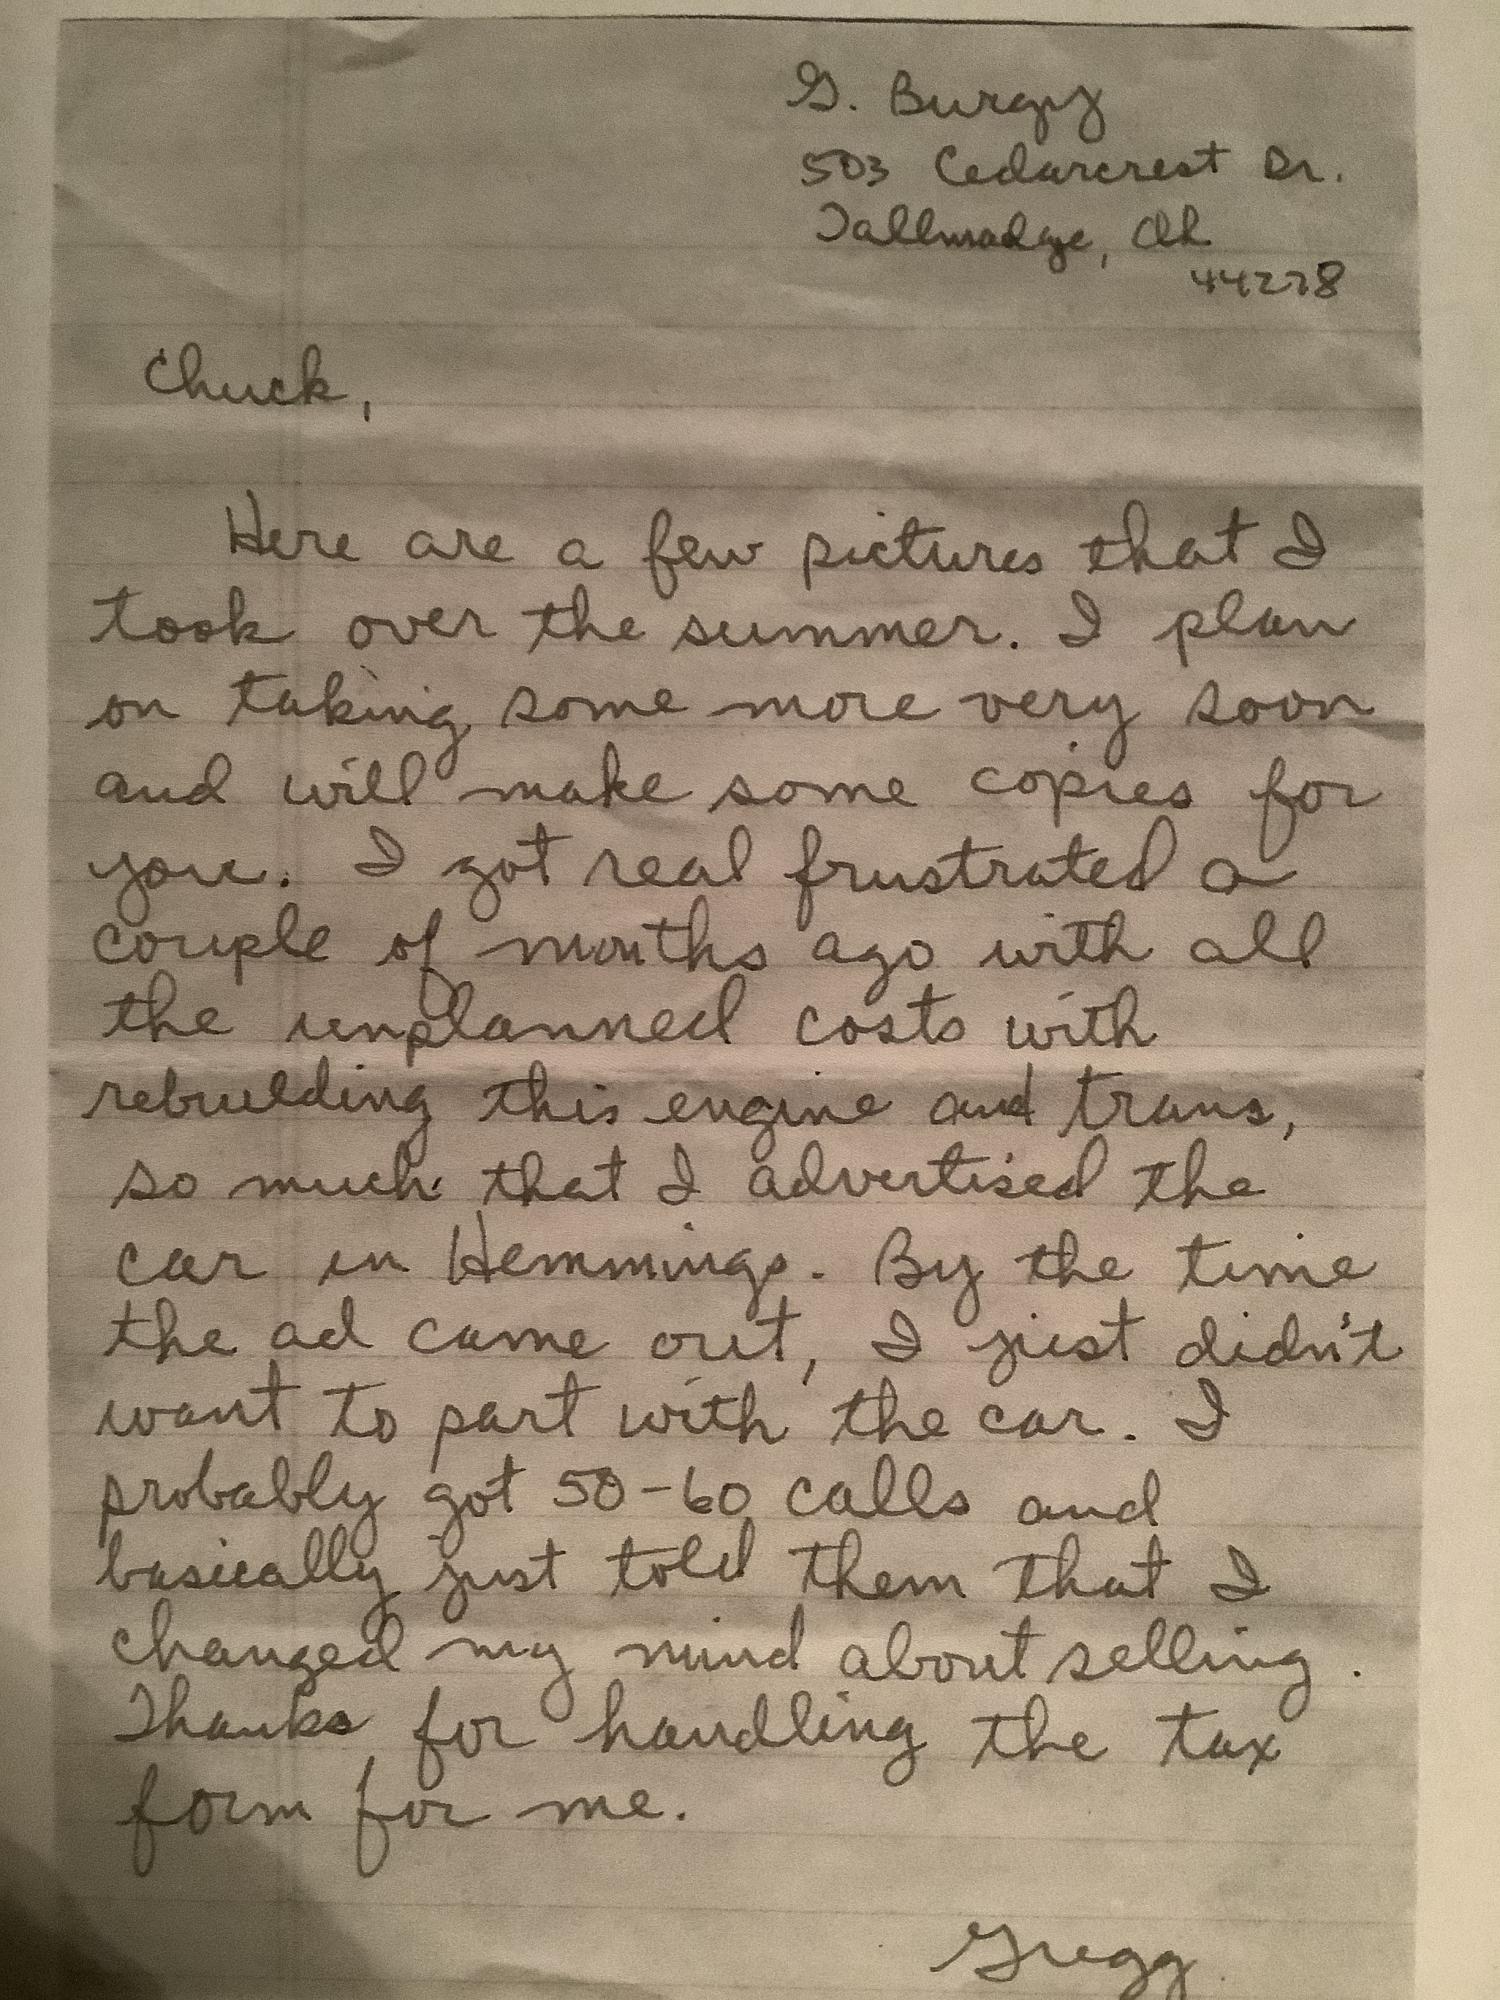 G. Burgy
503 Cedarcrest Dr.
Tallmadge, Oh
44278
Chuck,
Here are a few pictures that I
took over the summer. I plan
on taking some more very soon
and will make some copies for
you. I got real frustrated a
couple of months ago with all
the unplanned costs with
rebuilding this engine and trans,
so much that I advertised the
car in Hemmings. By the time
the ad came out, I just didn't
want to part with the car. I
probably got 50-60 calls and
basically just told them that I
changed my mind about selling.
Thanks for handling the tax
form for me.
Gregg